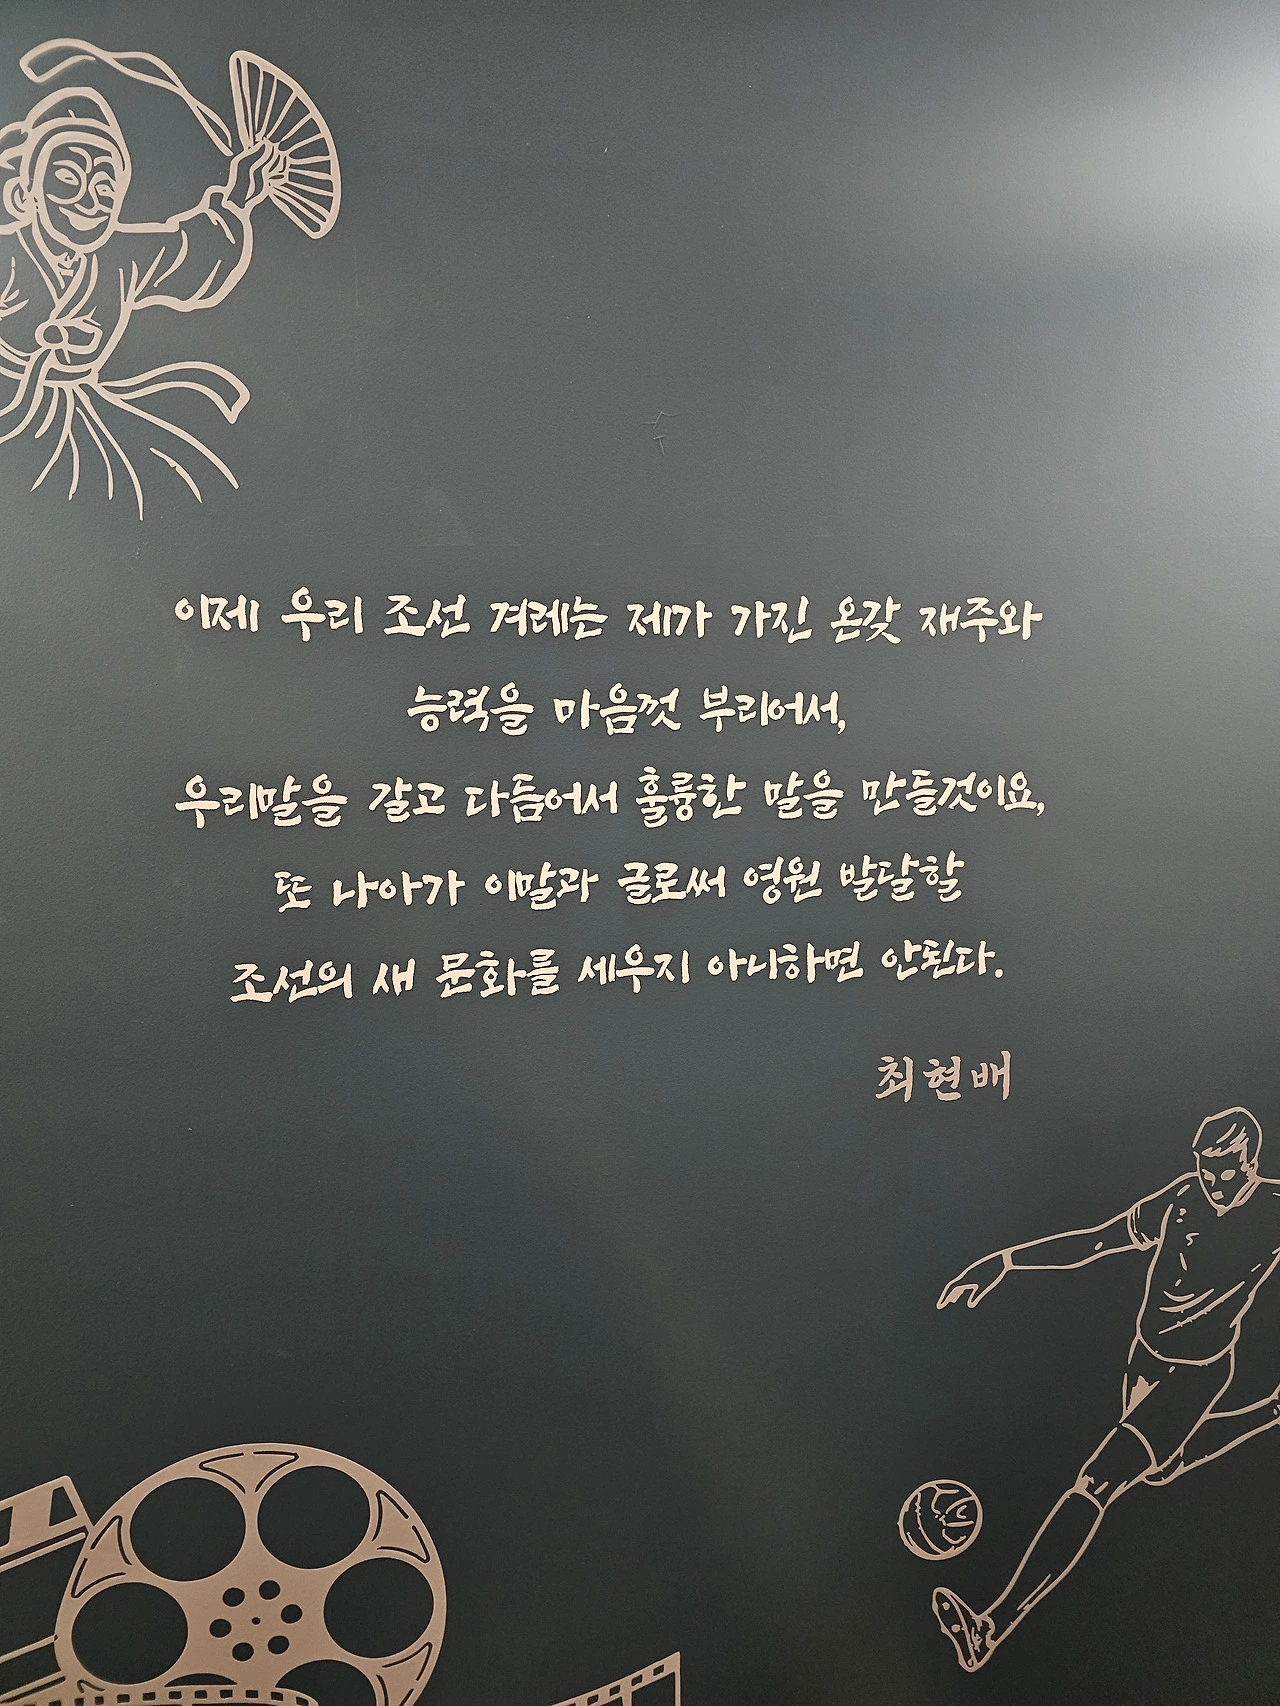 이제 우리 조선 겨레는 제가 가진 온갖 재주와
능력을 마음껏 부리어서,
우리말을 갈고 다듬어서 훌륭한 말을 만들것이요,
또 나아가 이말과 글로써 영원 발달할
조선의 새 문화를 세우지 아니하면 안된다.
최현배